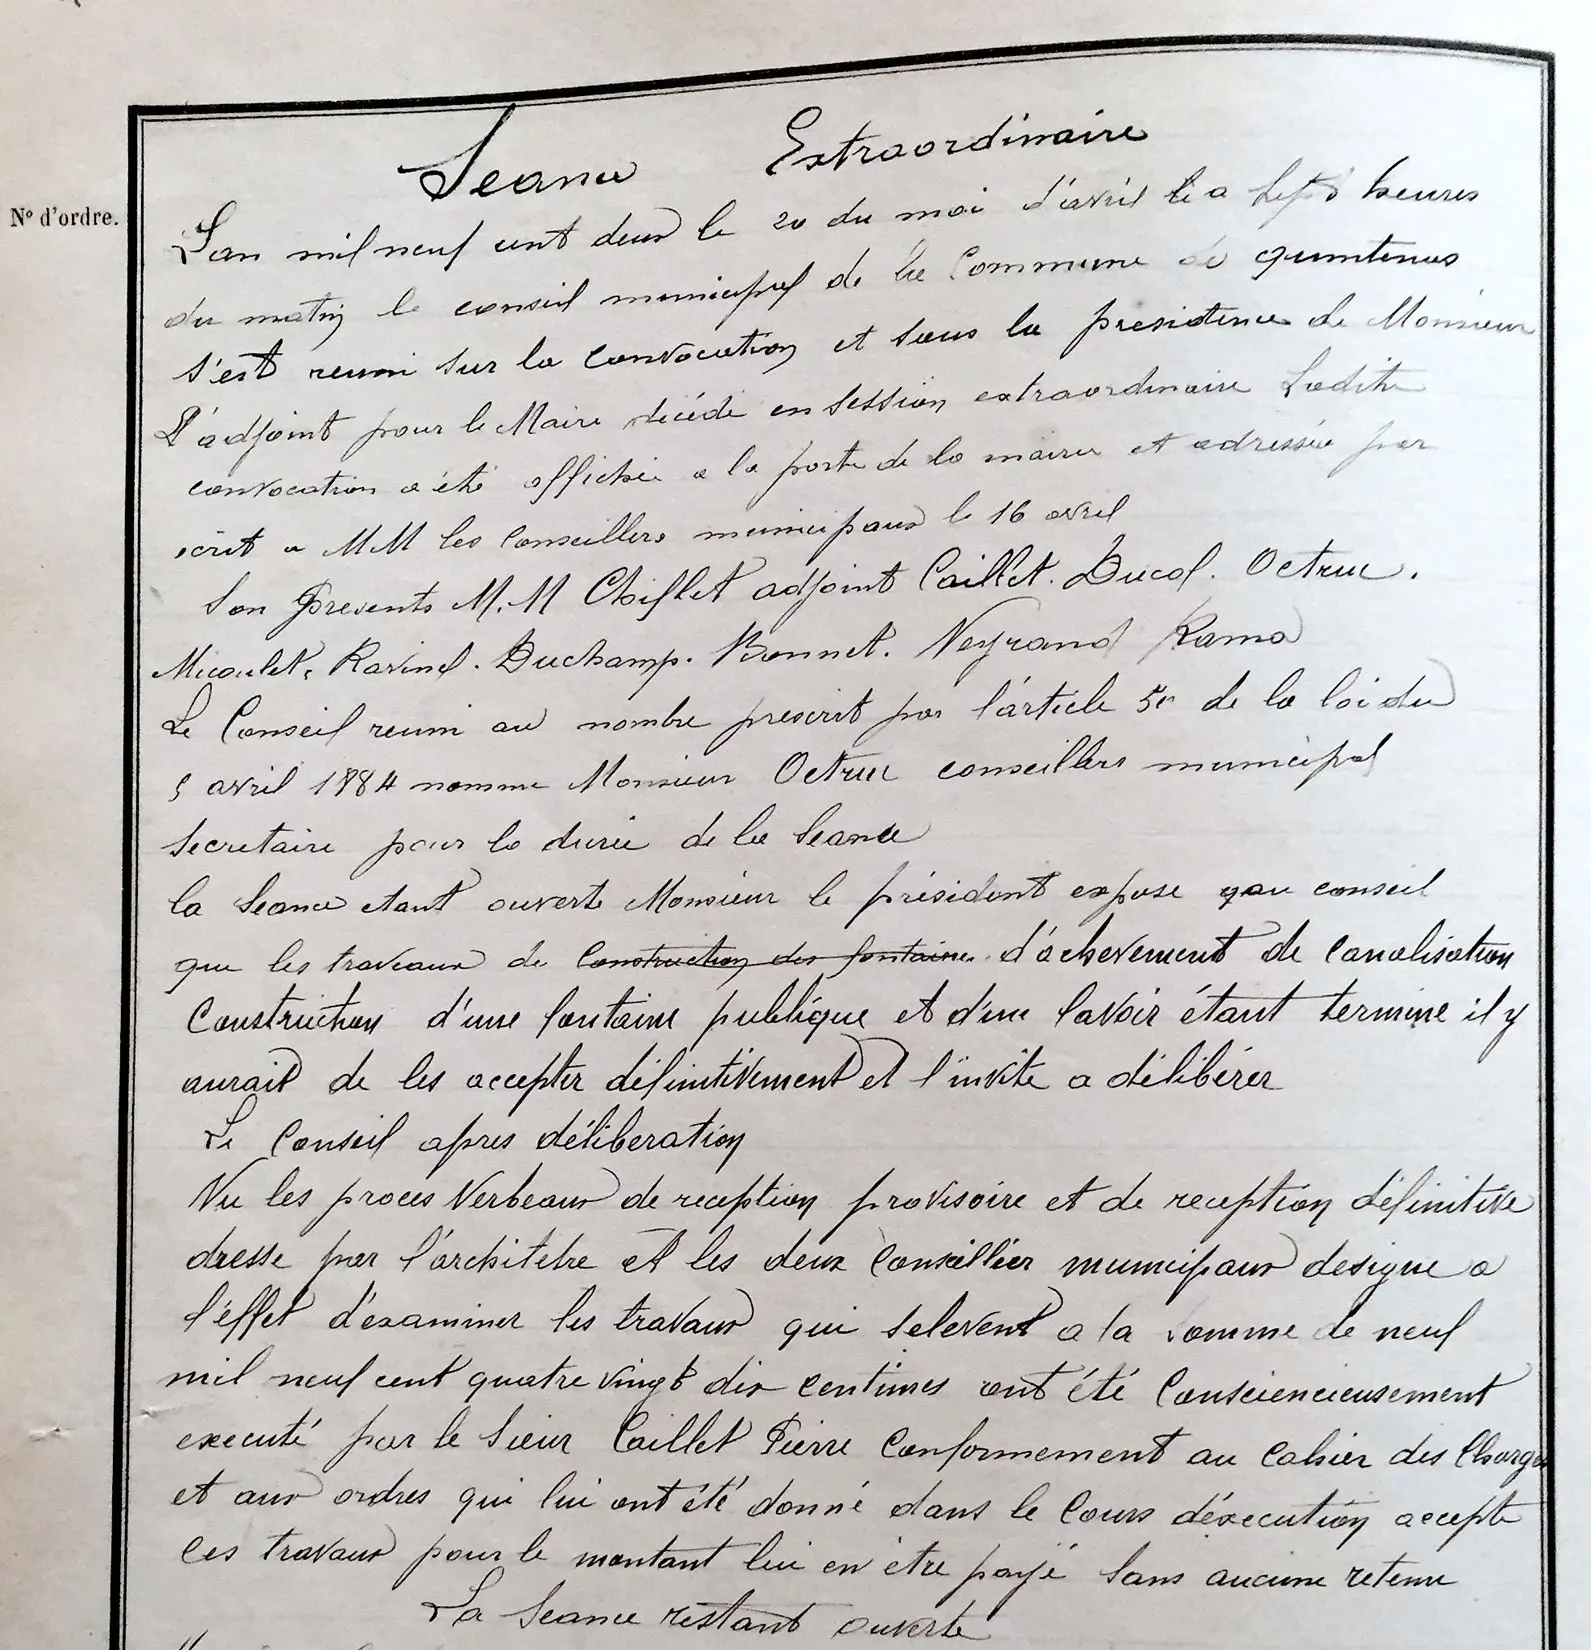 Seance Extraordinaire
N° d'ordre.
L'an mil neuf cent deux le 20 du moi d'avril a sept heures
du matin le conseil municipal de la Commune de quintenas
s'est reuni sur la convocation et sous la presidence de Monsieur
L'adjoint pour le Maire décédé en session extraordinaire Ladite
convocation a été affichée a la porte de la mairie et adressée par
écrit a MM les Conseillers municipaux le 16 avril
Son Presents M.M Chiflet adjoint Caillet. Ducol. Octrue.
Micoulet, Ravinel. Duchamp. Bonnet. Neyrand Rama
Le Conseil reuni au nombre prescrit par l'article 50 de la loi du
5 avril 1884 nomme Monsieur Octrue conseillers municipal
Secretaire pour la durée de la Seance
la Seance etant ouverte Monsieur le président expose au conseil
que les travaux de Construction des fontaines d'achevement de Canalisation
Construction d'une fontaine publique et d'un lavoir étant termine il y
aurait de les accepter définitivement et l'invite a délibérer
Le Conseil apres déliberation
Vu les proces Verbeaux de reception provisoire et de reception définitive
dresse par l'architete et les deux Conseillier municipaux designe a
l'effet d'examiner les travaux qui selevent a la somme de neuf
mil neuf cent quatre vingt dix centimes ont été Consciencieusement
executé par le Sieur Caillet Pierre Conformement au Cahier des Charges
et aux ordres qui lui ont été donné dans le Cours d'éxecution accepte
Ces travaux pour le montant lui en etre payé Sans aucune retenue
La Seance restant ouverte